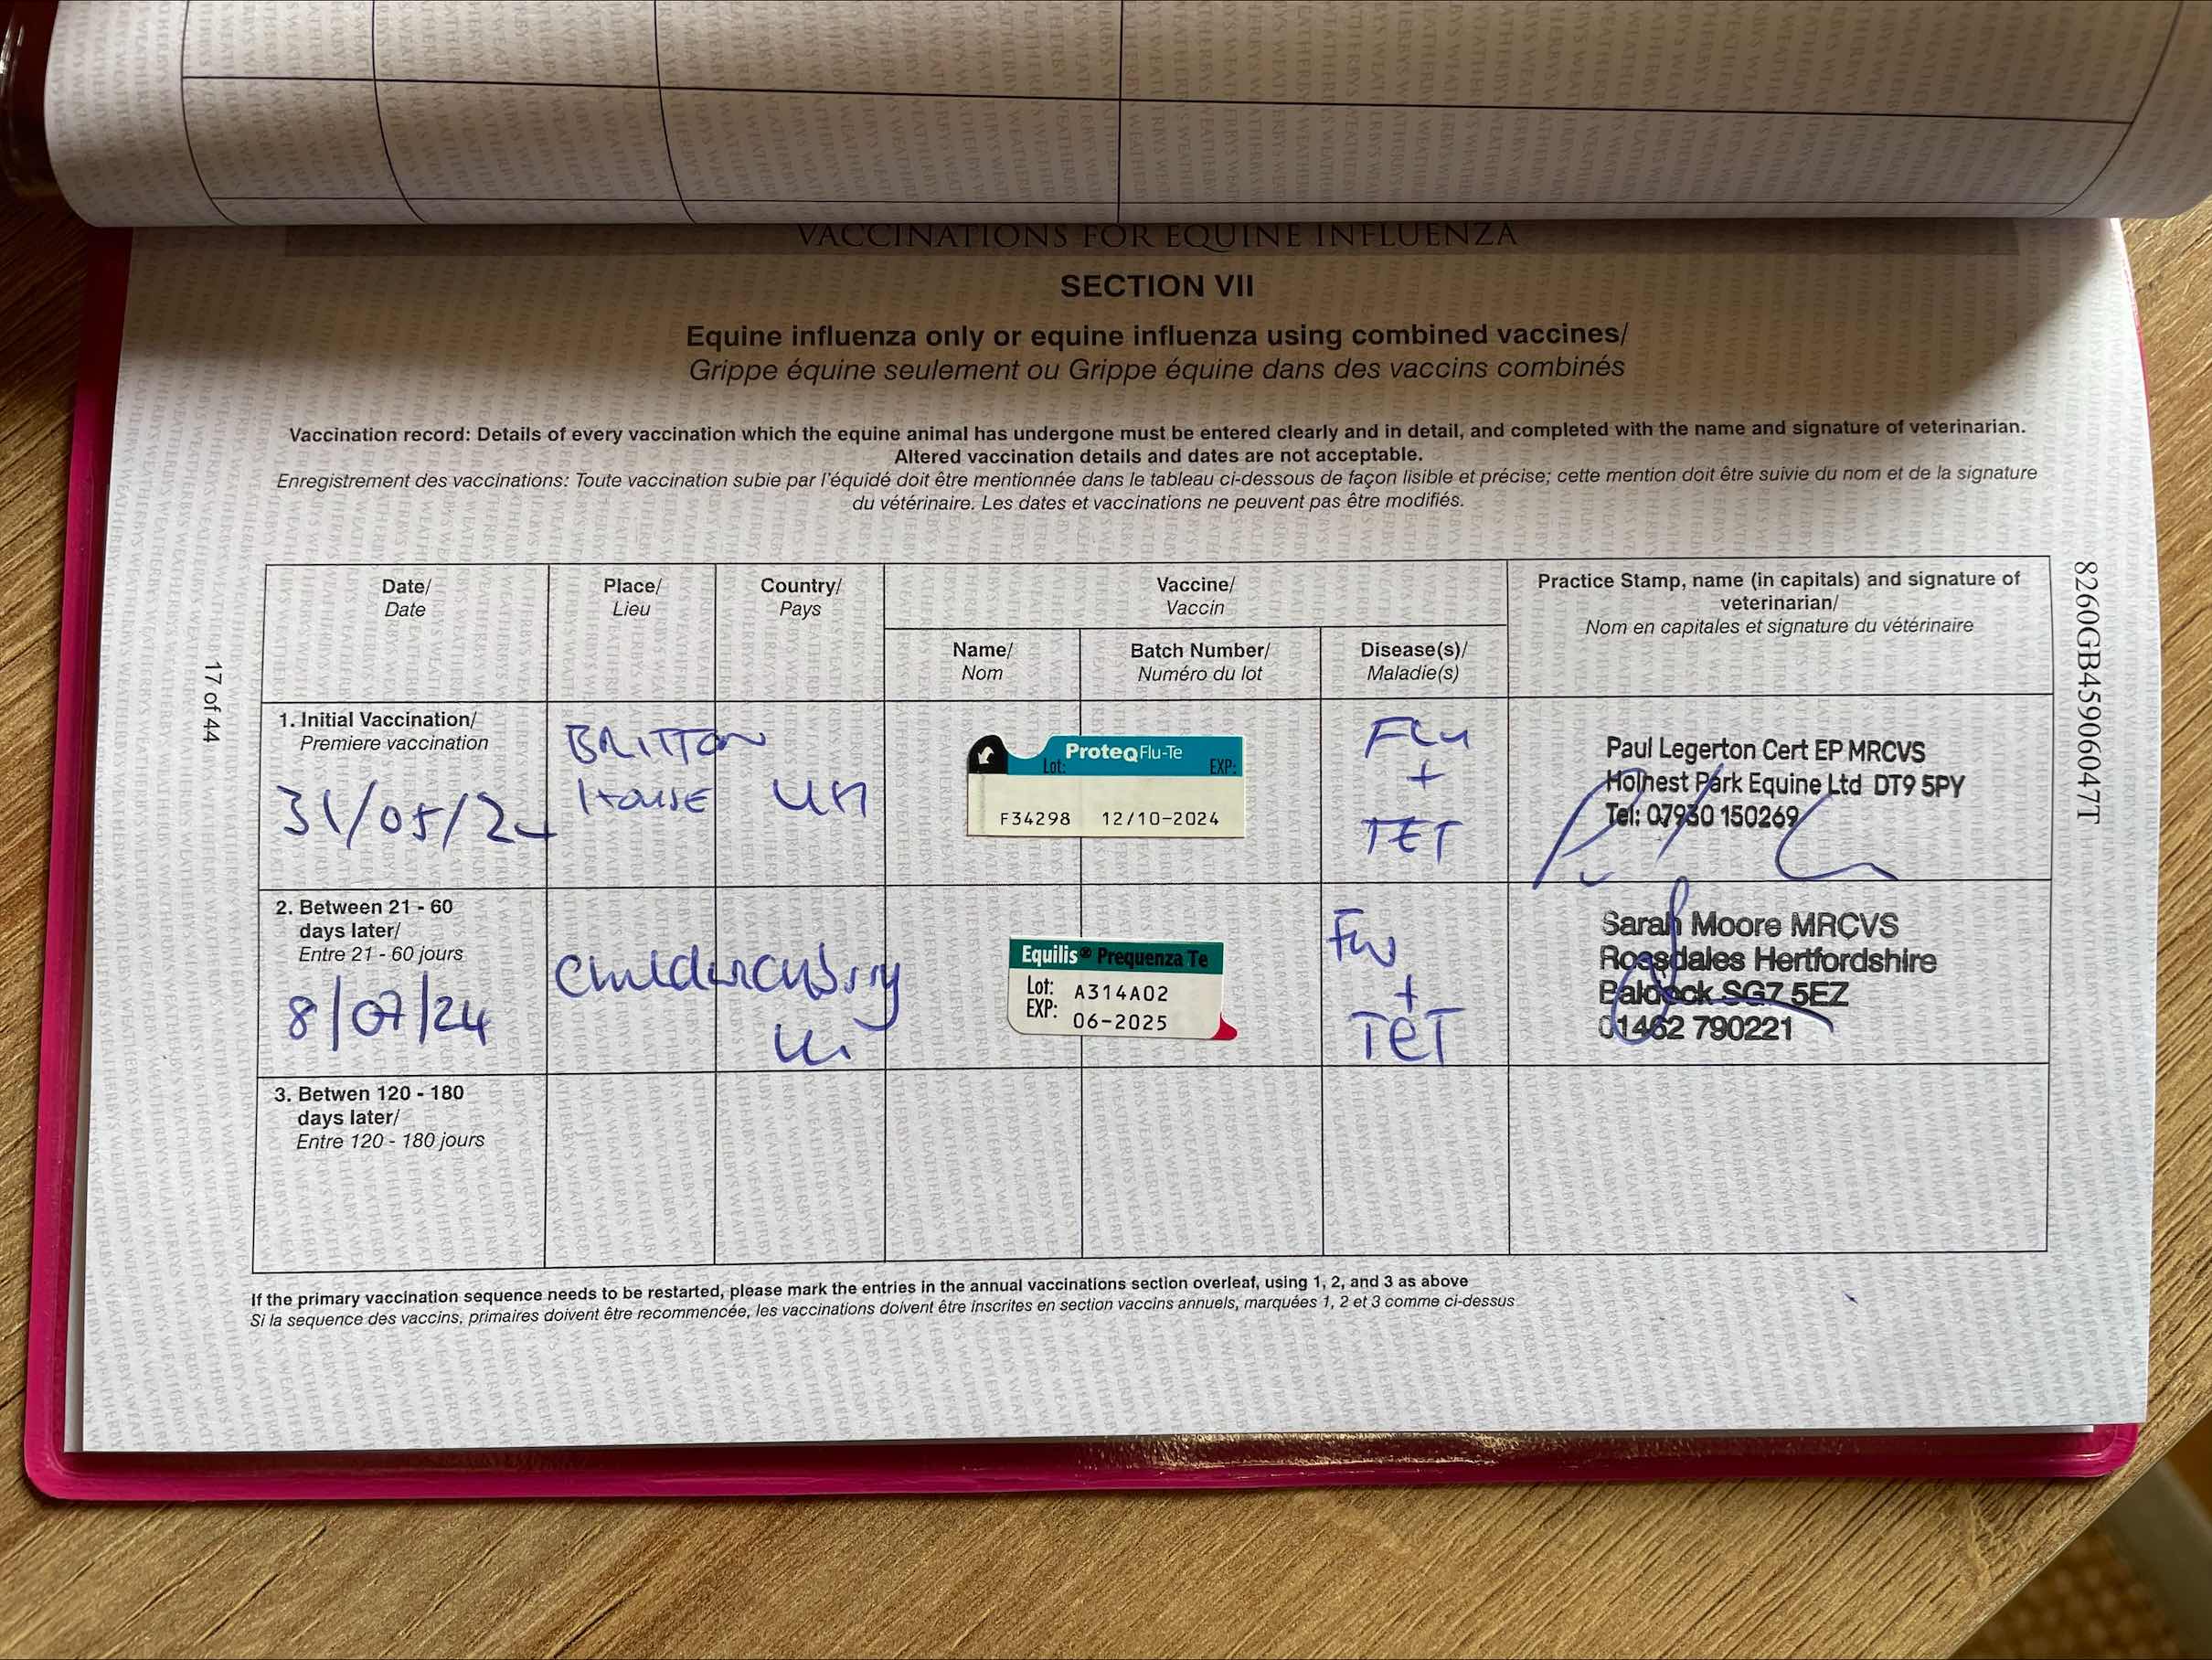 VACCINATIONS FOR EQUINE INFLUENZA
SECTION VII
Equine influenza only or equine influenza using combined vaccines/
Grippe équine seulement ou Grippe équine dans des vaccins combinés
Vaccination record: Details of every vaccination which the equine animal has undergone must be entered clearly and in detail, and completed with the name and signature of veterinarian.
Altered vaccination details and dates are not acceptable.
Enregistrement des vaccinations: Toute vaccination subie par l'équidé doit être mentionnée dans le tableau ci-dessous de façon lisible et précise; cette mention doit être suivie du nom et de la signature
du vétérinaire. Les dates et vaccinations ne peuvent pas être modifiés.
Date/
Date
Place/
Lieu
Country/
Pays
Vaccine/
Vaccin
Practice Stamp, name (in capitals) and signature of
veterinarian/
Nom en capitales et signature du vétérinaire
Name/
Nom
Batch Number/
Numéro du lot
Disease(s)/
Maladie(s)
1. Initial Vaccination/
Premiere vaccination
31/05/24
BRITTON
HOUSE
UK
ProteqFlu-Te
Lot: EXP:
F34298 12/10-2024
FLU
+
TET
Paul Legerton Cert EP MRCVS
Holnest Park Equine Ltd DT9 5PY
Tel: 07930 150269
2. Between 21 - 60
days later/
Entre 21 - 60 jours
8/07/24
UK
Equilis® Prequenza Te
Lot: A314A02
EXP: 06-2025
Flu
+
TET
Sarah Moore MRCVS
Rossdales Hertfordshire
Baldock SG7 5EZ
01462 790221
3. Betwen 120 - 180
days later/
Entre 120 - 180 jours
If the primary vaccination sequence needs to be restarted, please mark the entries in the annual vaccinations section overleaf, using 1, 2, and 3 as above
Si la sequence des vaccins, primaires doivent être recommencée, les vaccinations doivent être inscrites en section vaccins annuels, marquées 1, 2 et 3 comme ci-dessus
17 of 44
8260GB45906047T